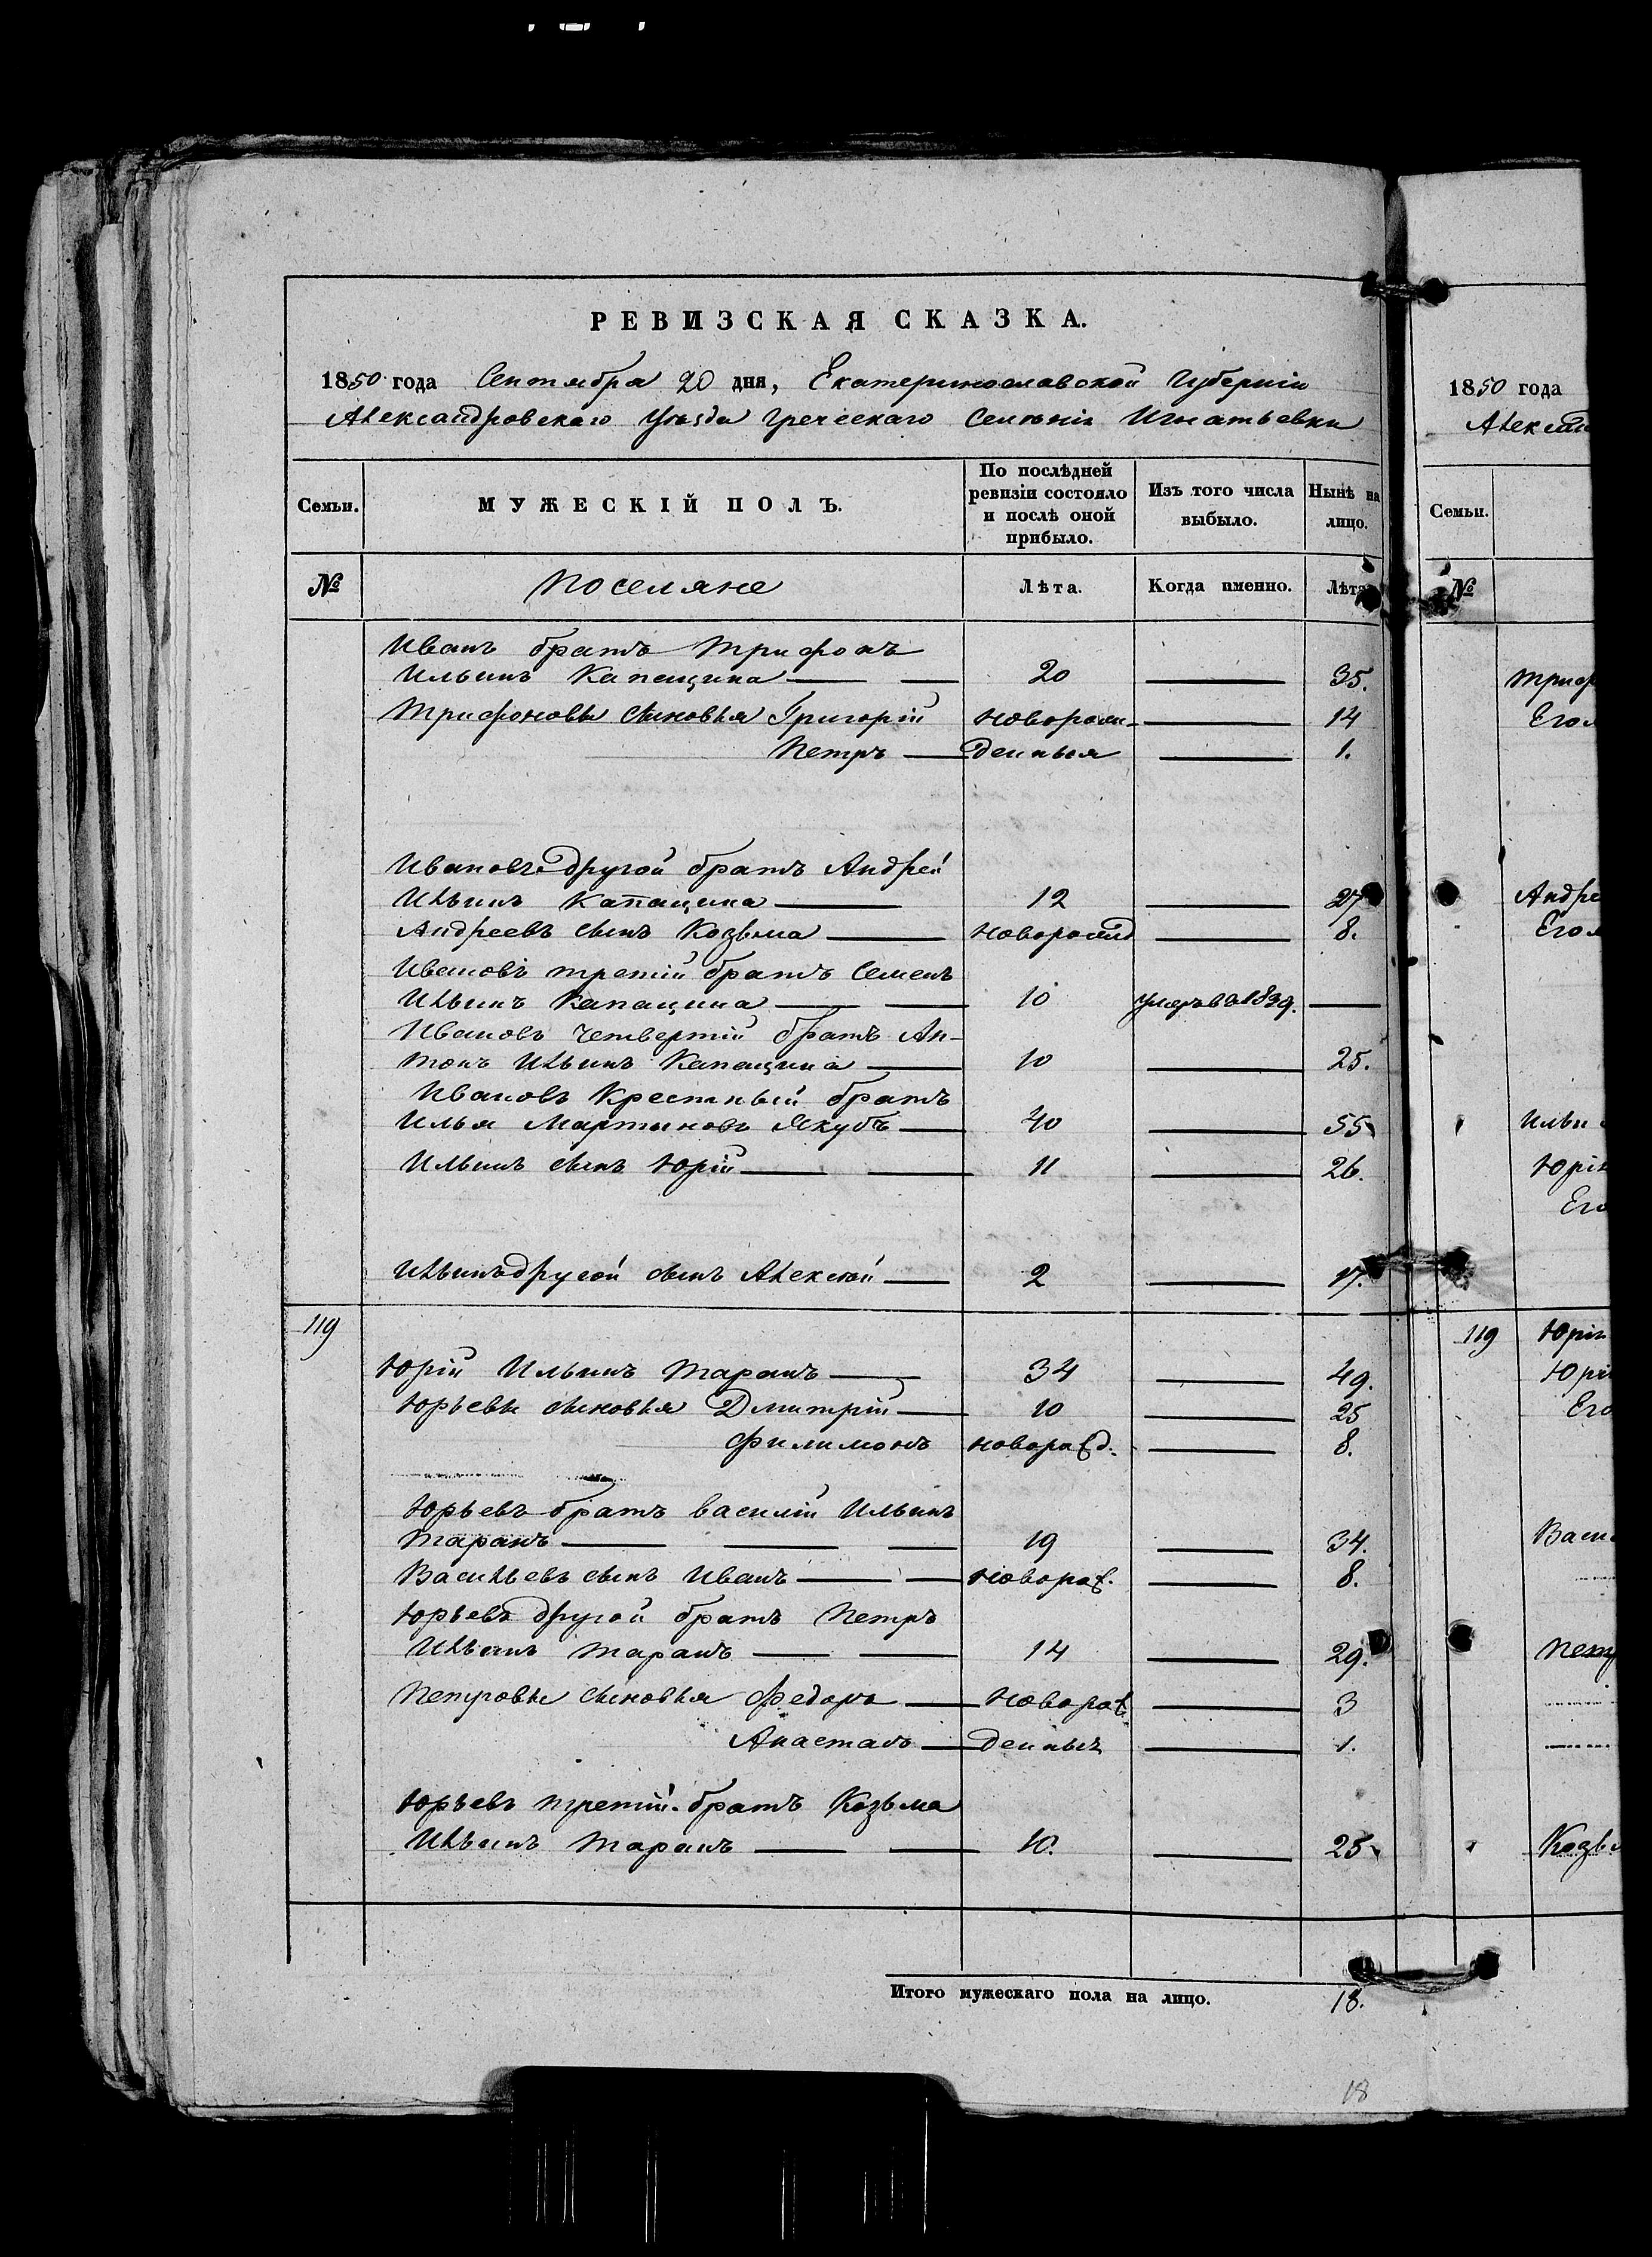 РЕВИЗСКАЯ СКАЗКА.
1850 года Сентября 20 дня, Екатеринославской Губерніи
Александровскаго Уѣзда Греческаго Селенія Игнатьевки
Семьи. МУЖЕСКІЙ ПОЛЪ. По послѣдней ревизіи состояло и послѣ оной прибыло. Изъ того числа выбыло. Нынѣ на лицо.
№ Поселяне Лѣта. Когда именно. Лѣта
Иванъ братъ Трифонъ
Ильинъ Капацина 20 35.
Трифоновы сыновья Григорій новорож- 14
Петръ денныя 1.
Ивановъ другой братъ Андрей
Ильинъ Капацина 12 27
Андреевъ сынъ Козьма новорожд 8.
Ивановъ третій братъ Семенъ
Ильинъ Капацина 10 умеръ въ 1839.
Ивановъ четвертій братъ Ан-
тонъ Ильинъ Капацина 10 25.
Ивановъ Крестный братъ
Илья Мартыновъ Якубъ 40 55
Ильинъ сынъ Юрій 11 26.
Ильинъ другой сынъ Алексей 2 17.
119
Юрій Ильинъ Таранъ 34 49.
Юрьевы сыновья Дмитрій 10 25
Филимонъ новорожд. 8.
Юрьевъ братъ Василій Ильинъ
Таранъ 19 34.
Васильевъ сынъ Иванъ новорож. 8.
Юрьевъ другой братъ Петръ
Ильинъ Таранъ 14 29.
Петровы сыновья Федоръ новорож 3
Анастасъ денныя 1.
Юрьевъ третій братъ Козьма
Ильинъ Таранъ 10. 25
Итого мужескаго пола на лицо. 18.
18
1850 года
Алексан
Семьи.
№
Триф
Его
Андре
Его
Ильи
Юрі
Его
119 Юрі
Юрі
Его
Васи
Петр
Козь